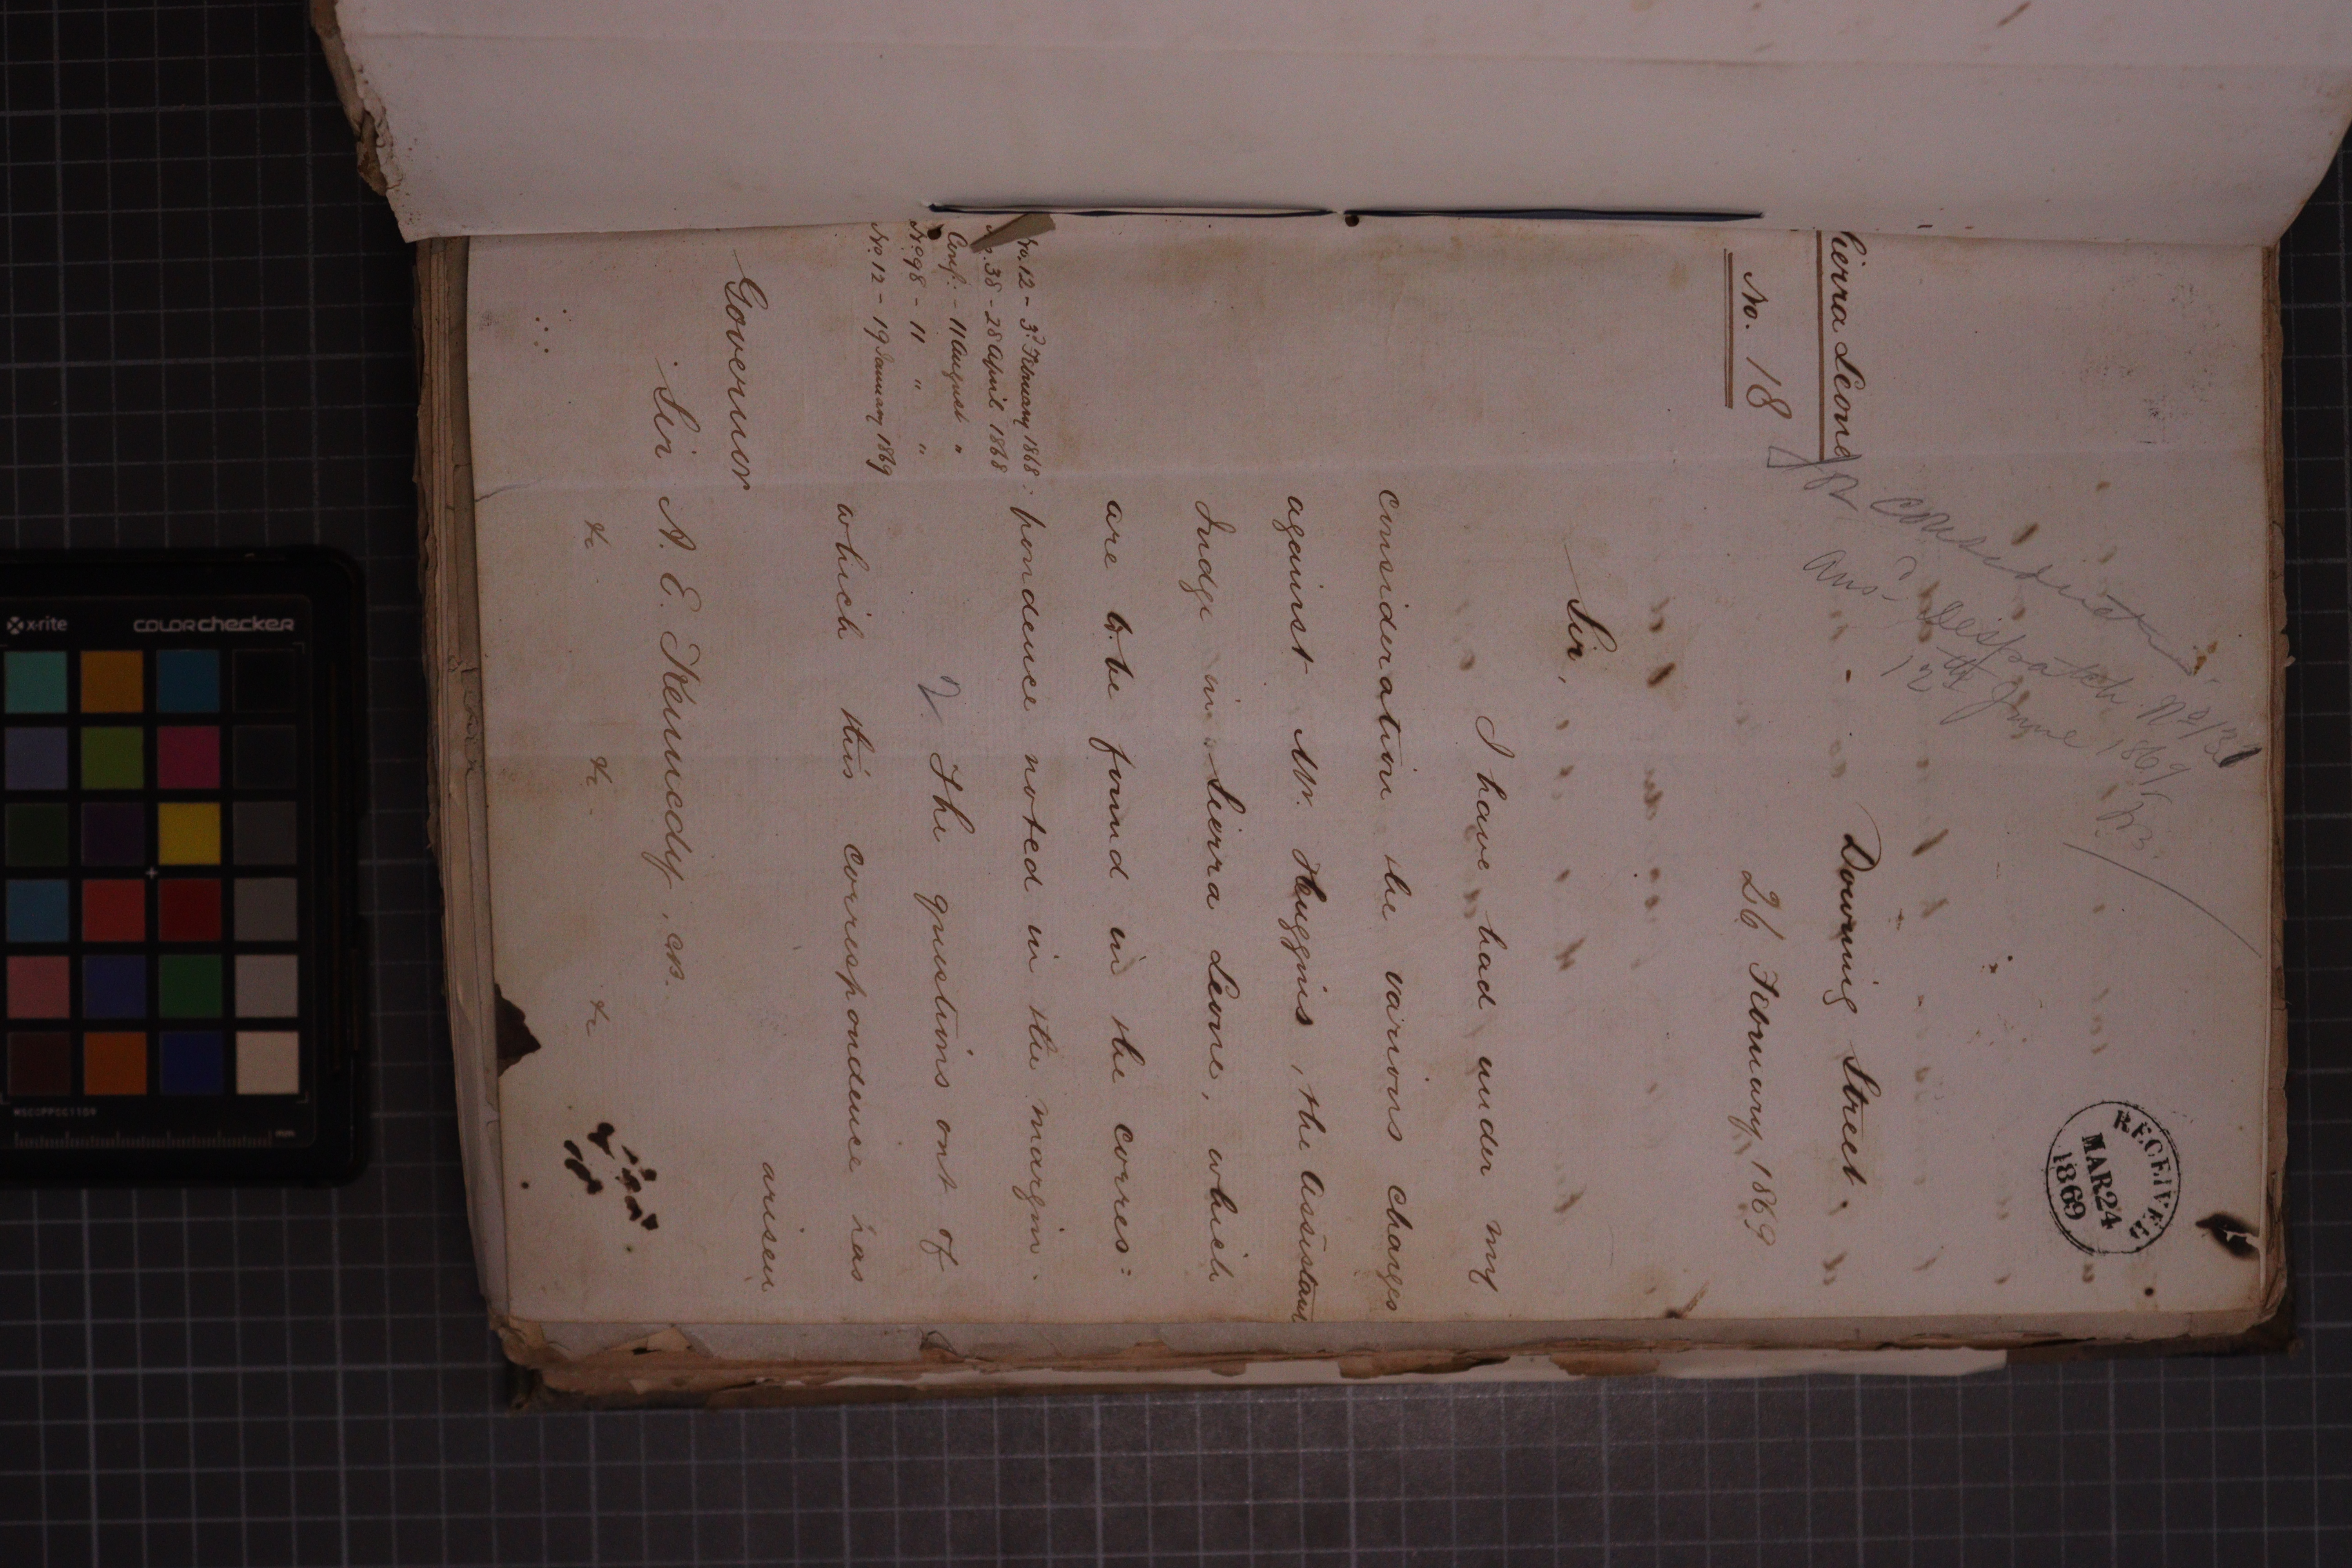 Sierra Leone
No. 18
for consideration
Ansd. Despatch No 73
12th June 1869
RECEIVED
MAR 24
1869
Downing Street.
26 February 1869
Sir,
I have had under my
consideration the various charges
against Mr. Huggins, the Assistant
Judge in Sierra Leone, which
are to be found in the corres=
No. 12 - 3d. February 1868.
No. 38 - 28 April 1868
Conf: - 11 August "
No. 98 - 11 " "
No. 12 - 19 January 1869
pondence noted in the margin.
2. The questions out of
which this correspondence has
arisen
Governor
Sir A. E. Kennedy, CB.
&c &c &c
x-rite colorchecker
MSCCPPCC1109
mm